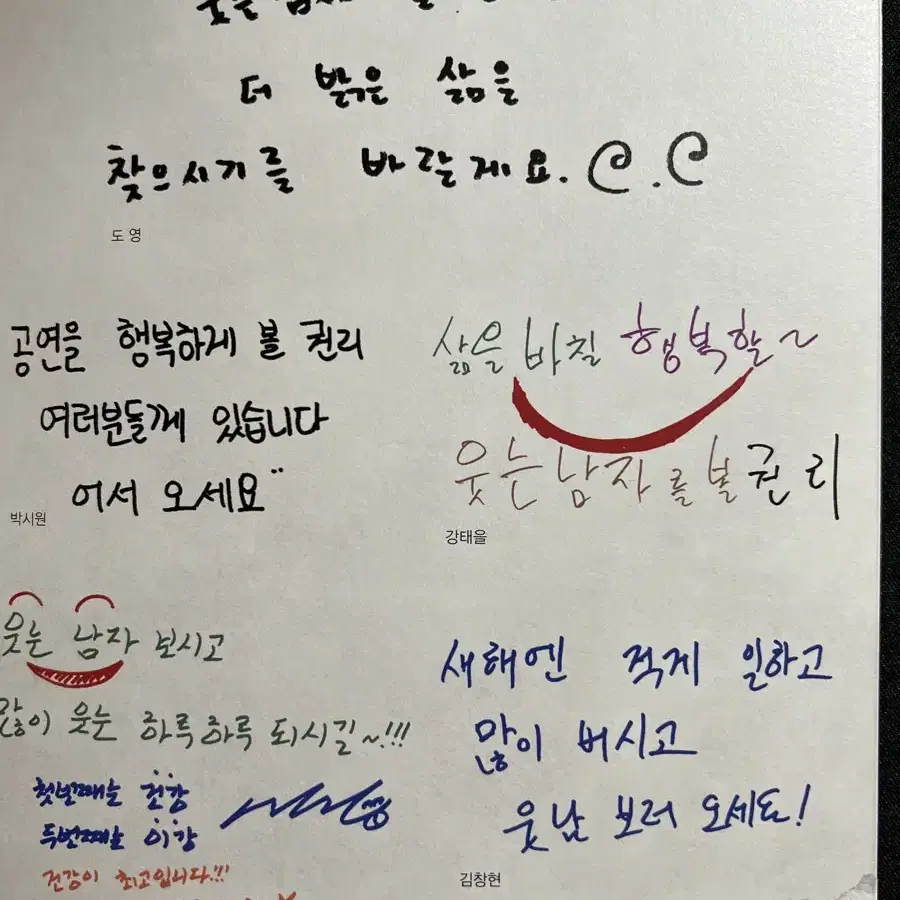 더 밝은 삶을
찾으시기를 바랄게요.
도영
공연을 행복하게 볼 권리
여러분들께 있습니다
어서 오세요
박시원
삶을 바칠 행복할~
웃는 남자를 볼 권리
강태을
웃는 남자 보시고
많이 웃는 하루하루 되시길~!!!
첫번째는 건강
두번째는 이강
건강이 최고입니다!!!
새해엔 적게 일하고
많이 버시고
웃남 보러 오세요!
김창현